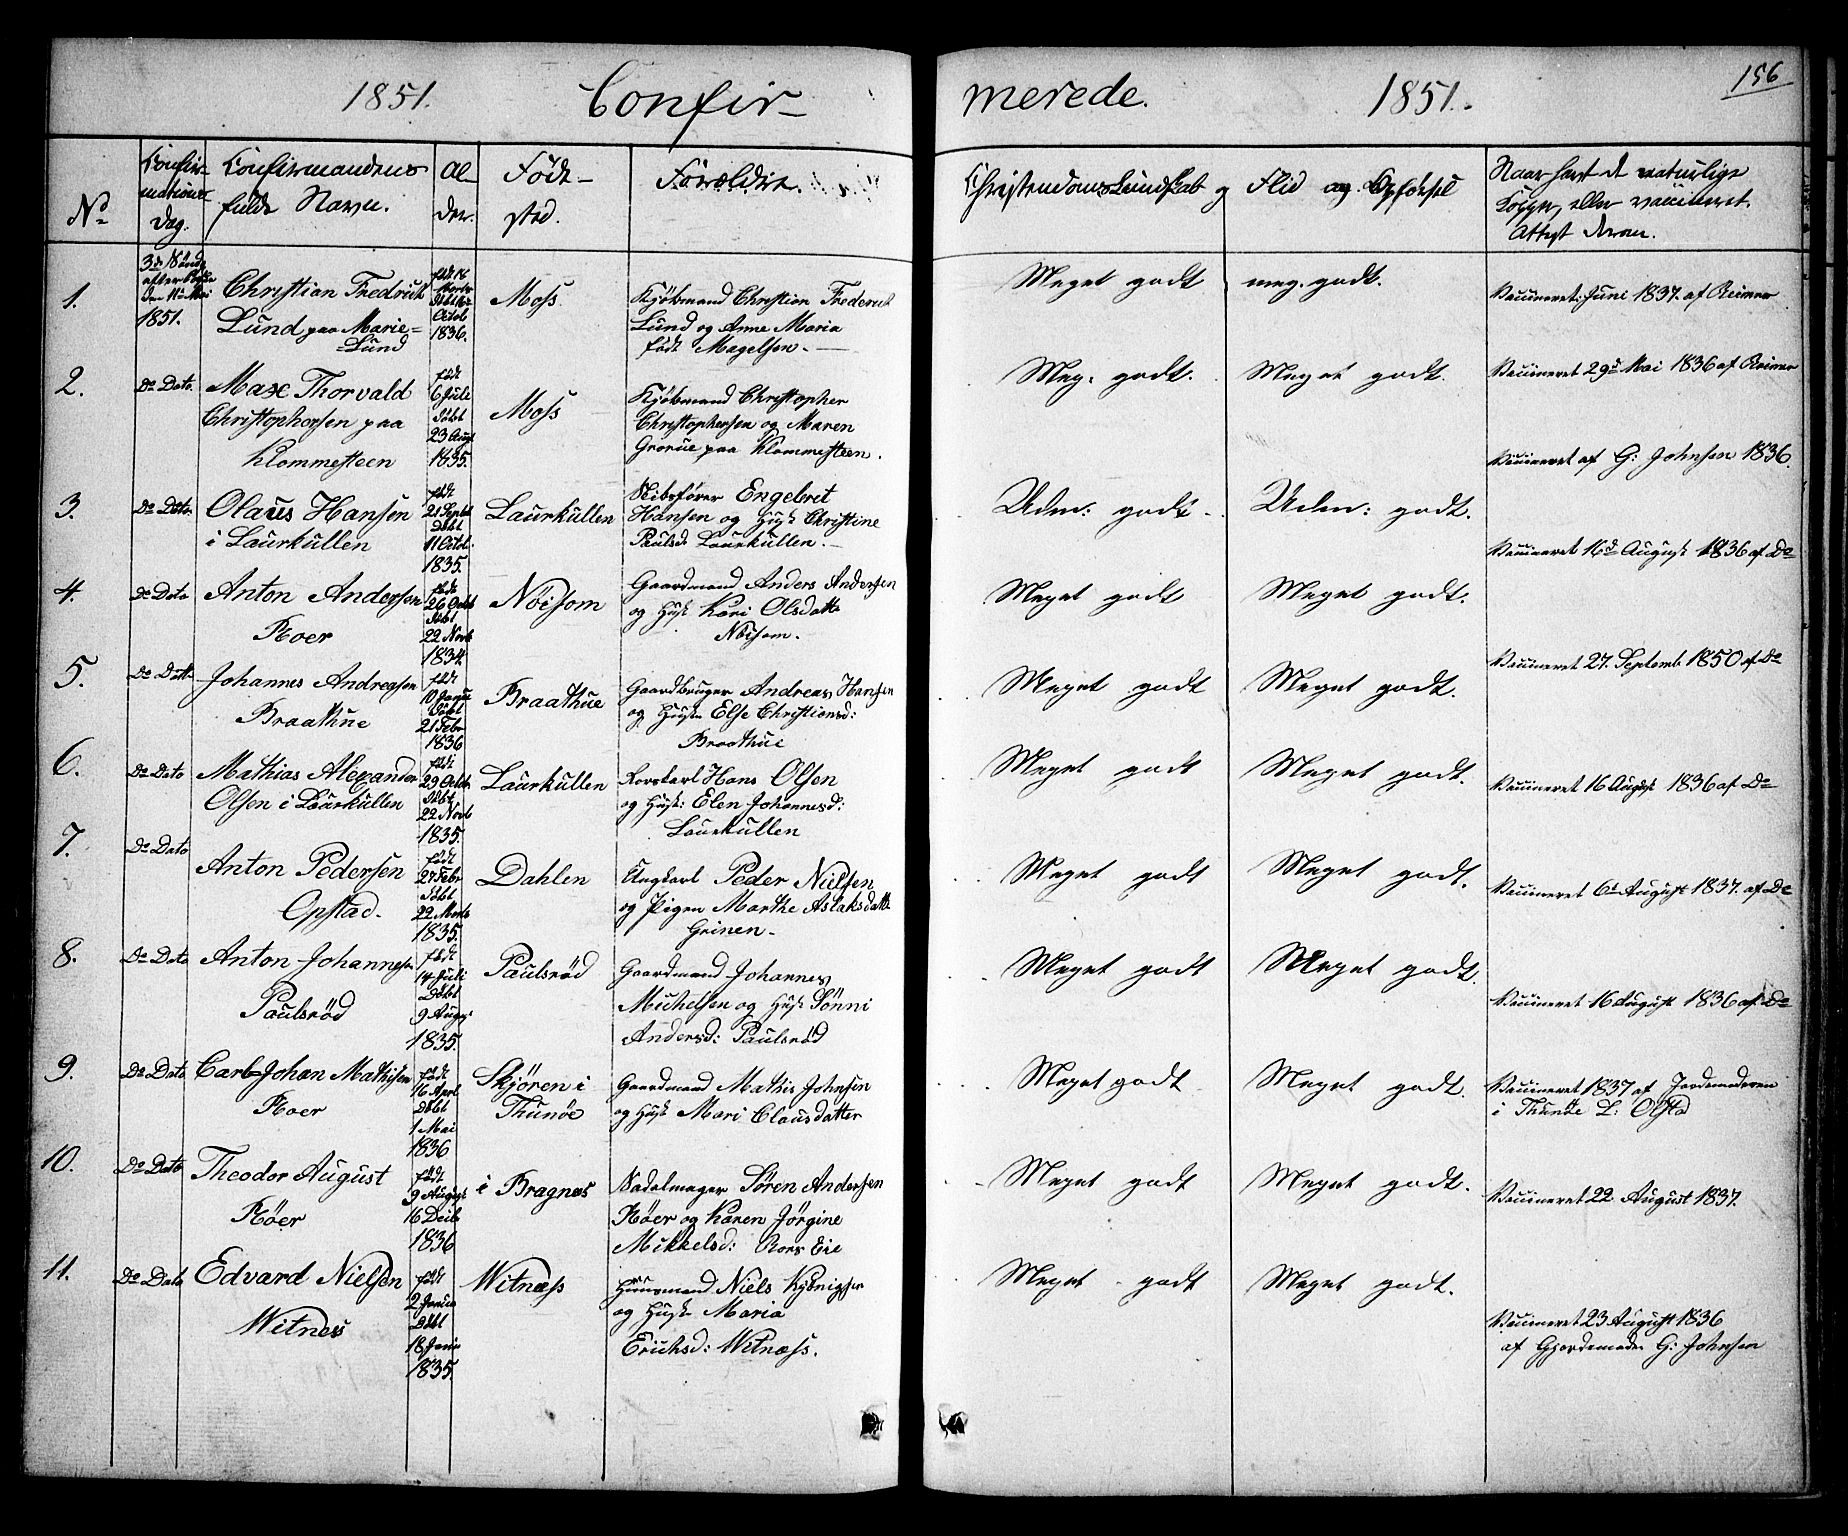 1851. Confir-
merede. 1851. 156
No
Confir-
mations-
Dag.
Confirmandens
fulde Navn.
Al-
der.
Føde-
sted.
Forældre.
Christendoms Kundskab og Flid og Opførsel
Naar havt de naturlige
Kopper, eller vaccineret.
Attest derom.
1.
3de Sønd.
efter Paaske
den 11te Mai
1851.
Christian Fredrick
Lund paa Marie=
=Lund
født 18
døbt
Octob
1836.
Moss.
Kjøbmand Christian Frederick
Lund og Anne Maria
født Magelsen.
Meget godt
meg. godt.
Vaccineret: Juni 1837. af Reimer
2.
Do Dato.
Maxe Thorvald
Christophersen paa
Klommesteen
født
6 Juli
døbt
23 Augt
1835.
Moss
Kjøbmand Christopher
Christophersen og Maren
Grorue paa Klommesteen.
Meg. godt.
Meget godt.
Vaccineret 29de Mai 1836 af Reimer
3.
Do Dato.
Olaus Hansen
i Laurkullen
født
21 Septbr
Døbt
11 Octob.
1835.
Laurkullen
Skibsfører Engebret
Hansen og Hust Christine
Paulsd. Laurkullen.
Udm: godt.
Udm: godt.
Vaccineret af G: Johnsen 1836.
4.
Do Dato
Anton Andersen
Roer
født
26 Octob
døbt
22 Novb
1834.
Nöisom
Gaardmand Anders Andersen
og Hust Kari Olsdatt
Nöisom.
Meget godt
Meget godt.
Vaccineret 16de August 1836 af Do
5.
Do Dato
Johannes Andreasen
Braathue
født
10 Janu
Døbt
21 Febr
1836
Braathue
Gaardbruger Andreas Hansen
og Hust. Else Christiansd:
Braathue
Meget godt
Meget godt.
Vaccineret 27. Septemb. 1850 af Do
6.
Do Dato
Mathias Alexander
Olsen i Laurkullen
født
29 Octob
døbt
22 Novb
1835.
Laurkullen
Hans Olsen
og Hust: Elen Johannesd:
Laurkullen
Meget godt
Meget godt.
Vaccineret 16 August 1836 af Do
7.
Do Dato
Anton Pedersen
Opstad.
født
27 Febr
døbt
22 Marts
1835.
Dahlen
Ungkarl Peder Nielsen
og Pigen Marthe Aslaksdatt
Grinen.
Meget godt
Meget godt.
Vaccineret 6te August 1837. af Do
8.
Do Dato
Anton Johannesen
Paulsrød
født
14 Juli
Døbt
9 Augs
1835.
Paulsrød
Gaardmand Johannes
Michelsen og Hust Sønni
Andersd: Paulsrød
Meget godt
Meget godt.
Vaccineret 16 August 1836 af Do
9.
Do Dato
Carl Johan Mathisen
Roer
født
16 Aprl
Døbt
1 Mai
1836
Skjøren i
Thunøe
Gaardmand Mathis Johnsen
og Hust Mari Clausdatter
Meget godt
Meget godt.
Vaccineret 1837 af Jordemoderen
i Thunøe L: Olsta
10.
Do Dato
Theodor August
Röer
født
9 August
16 Decb
1836
i Bragnæs
Nadelmager Søren Andersen
Röer og Karen Jørgine
Mikkelsd: Rørs Eie
Meget godt
Meget godt.
Vaccineret 22 August 1837.
11.
Do Dato
Edvard Nielsen
Witnæs
født
2 Janua
Døbt
18 Janu
1835.
Witnæss
Huusmand Niels
og Hust. Maria
Erichsd: Witnæss.
Meget godt
Meget godt.
Vaccineret 23 August 1836
af Gjordemoder G: Johnsen